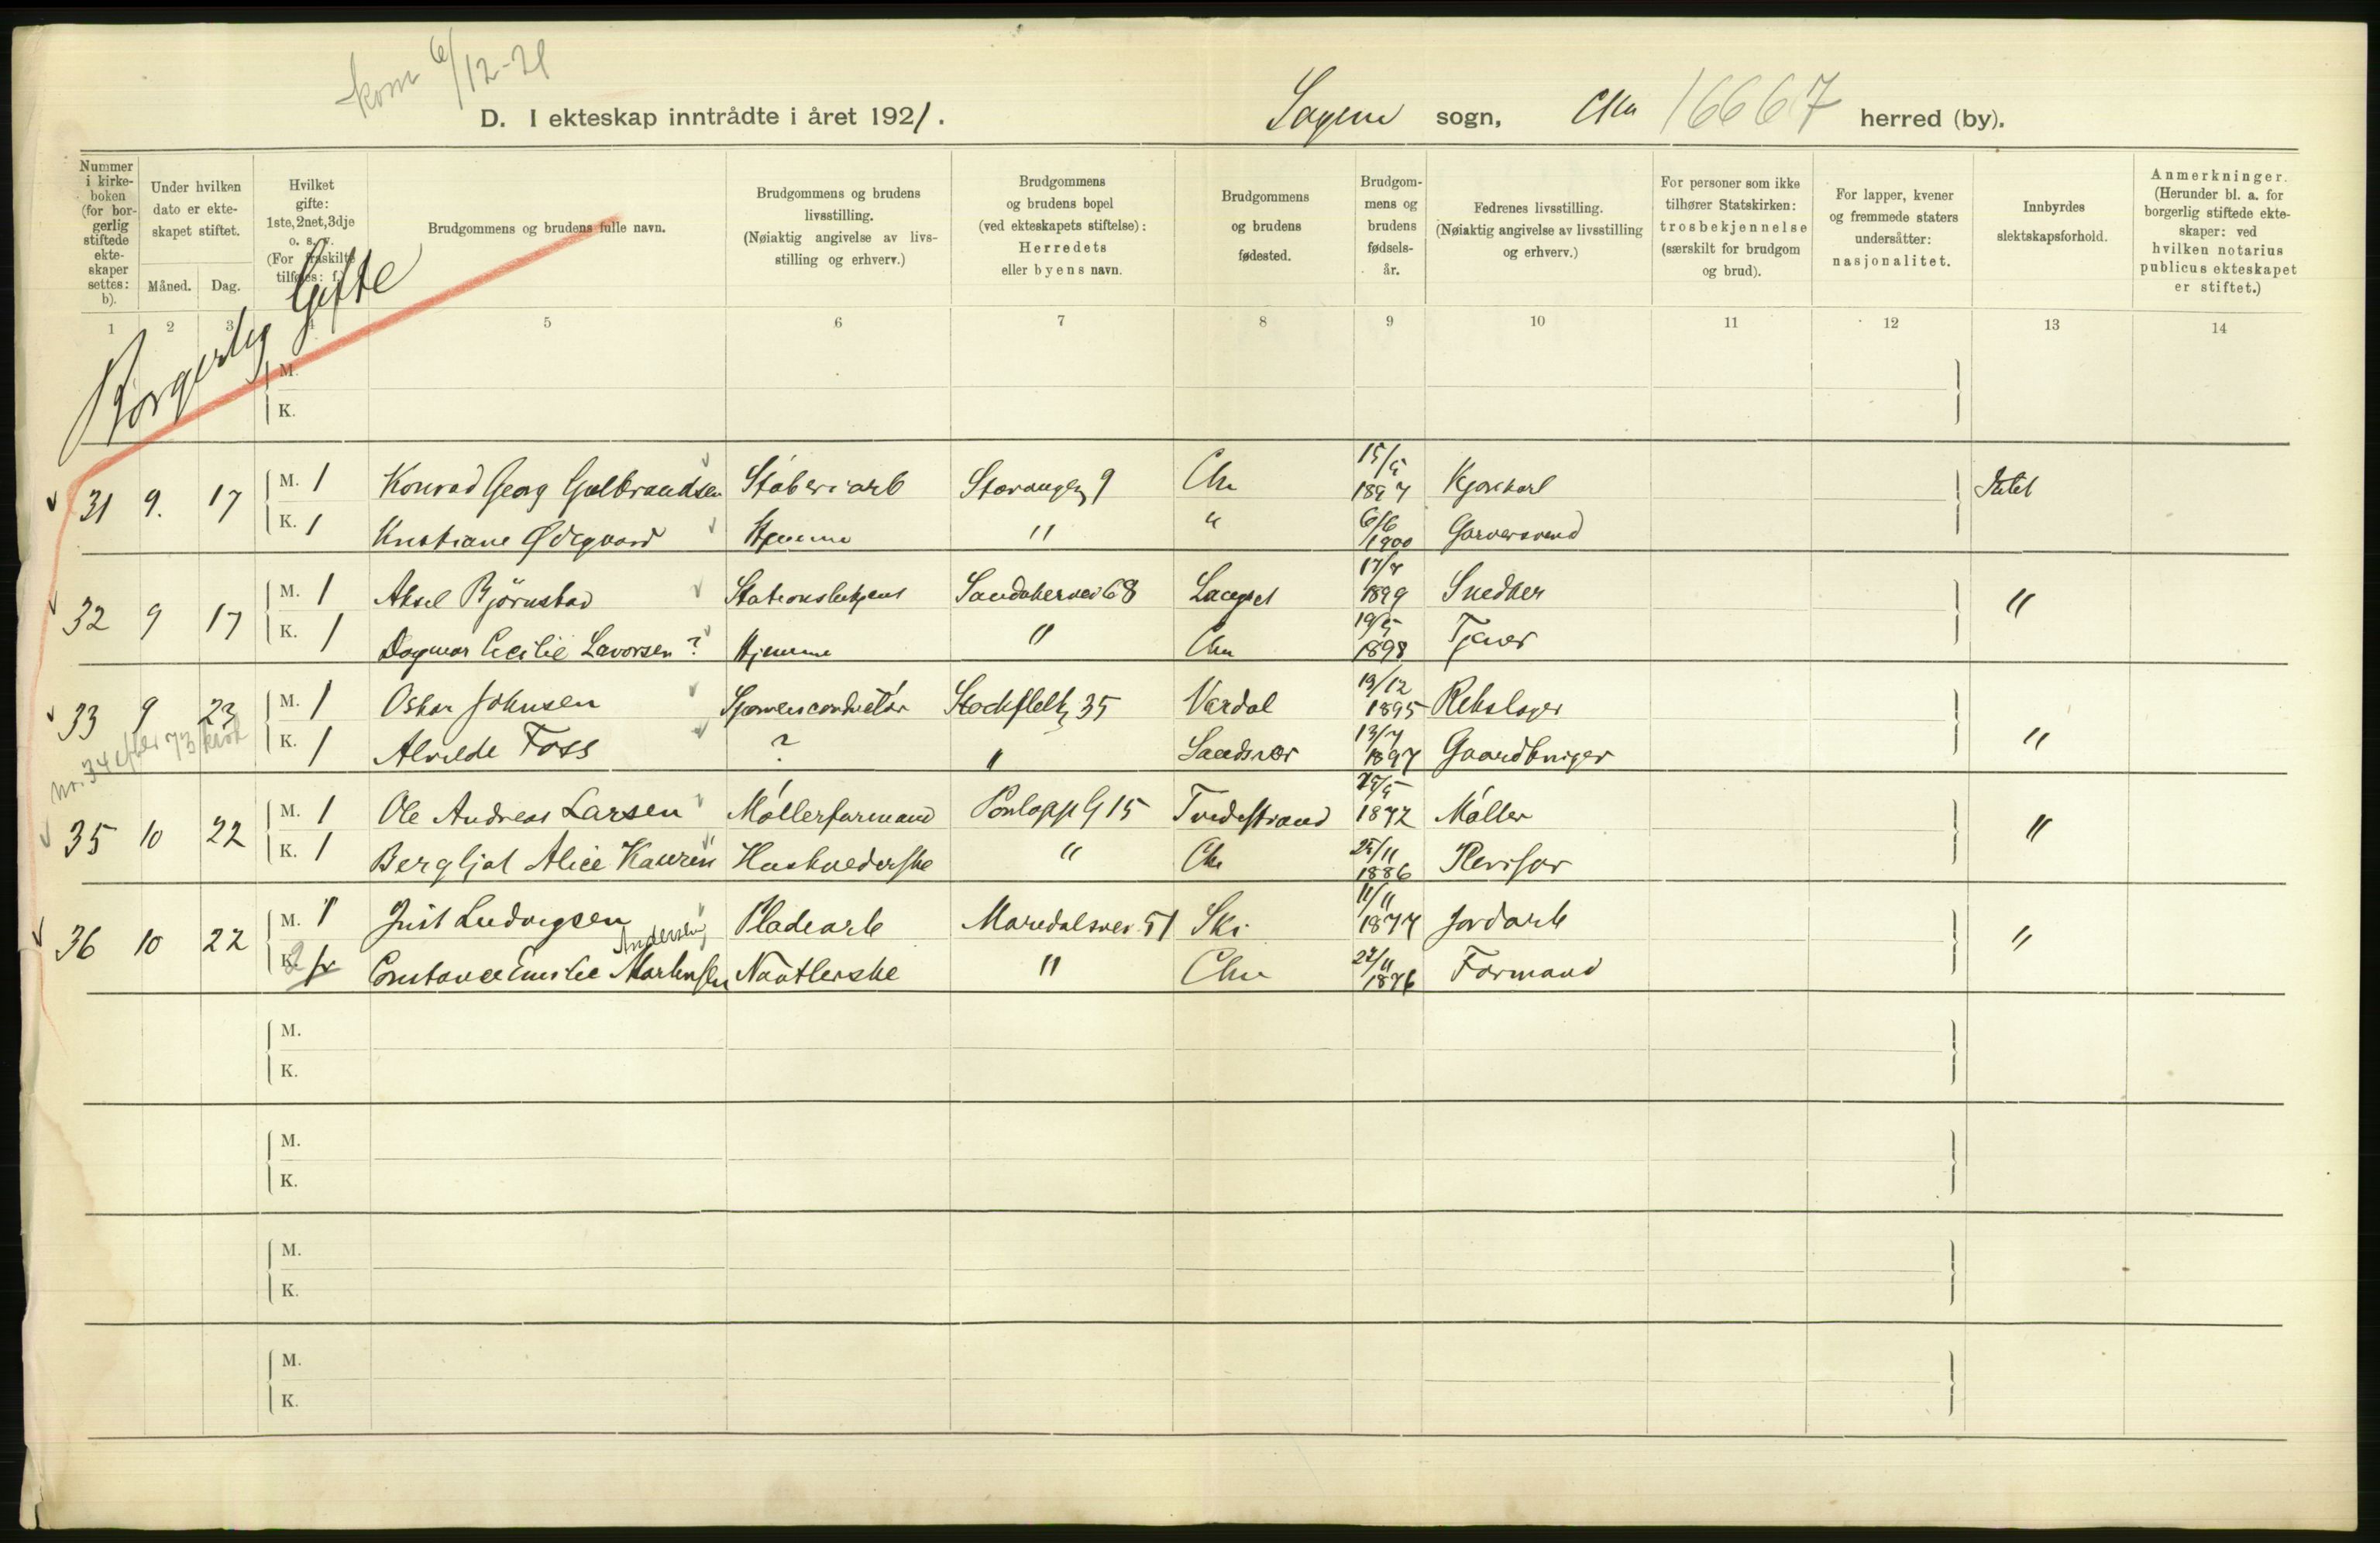 kom 6/12-21
D. I ekteskap inntrådte i året 1921. Sagene sogn, Chra 16667 herred (by).
Nummer i kirke-boken (for bor-gerlig stiftede ekte-skaper settes: b).
Under hvilken dato er ekte-skapet stiftet.
Måned. Dag.
Hvilket gifte: 1ste, 2net, 3dje o. s. v. (For fraskilte tilføies: f.)
Brudgommens og brudens fulle navn.
Brudgommens og brudens livsstilling. (Nøiaktig angivelse av livs-stilling og erhverv.)
Brudgommens og brudens bopel (ved ekteskapets stiftelse): Herredets eller byens navn.
Brudgommens og brudens fødested.
Brudgom-mens og brudens fødsels-år.
Fedrenes livsstilling. (Nøiaktig angivelse av livsstilling og erhverv.)
For personer som ikke tilhører Statskirken: trosbekjennelse (særskilt for brudgom og brud).
For lapper, kvener og fremmede staters undersåtter: nasjonalitet.
Innbyrdes slektskapsforhold.
Anmerkninger. (Herunder bl. a. for borgerlig stiftede ekte-skaper: ved hvilken notarius publicus ekteskapet er stiftet.)
1 2 3 4 5 6 7 8 9 10 11 12 13 14
Borgerlig Gifte
M.
K.
31 9. 17 M. 1 Konrad Georg Gulbrandsen Støberiarb Stavangerg 9 Chr 15/5 1897 Kjørekarl Intet
K. 1 Kristiane Ødegaard Hjemme " " 6/6 1900 Garversvend
32 9 17 M. 1 Aksel Bjørnstad Stationsbetjent Sandakervei 68 17/8 1899 Snedker "
K. 1 Dagmar Cecilie Lavorsen ? Hjemme " Chr 19/5 1898
33 9 23 M. 1 Oskar Johnsen Stockfletg 35 Vardal 19/12 1895 Rebslager
K. 1 Alvilde Foss ? " Sandsvær 13/7 1897 Gaardbruger "
nr. 34 efter 73
35 10 22 M. 1 Ole Andreas Larsen Møllerformand Pontoppg 15 Tvedestrand 1872 Møller "
K. 1 Bergljot Alice Kaurin Husholderske " Chr 25/11 1886 Revisor
36 10 22 M. 1 Just Ludvigsen Pladearb Maridalsvei 51 Ski 11/11 1877 Jordarb "
K. 2 fr Constance Emilie Martinsen Andersen Naatlerske " Chr 27/11 1876 Formand
M.
K.
M.
K.
M.
K.
M.
K.